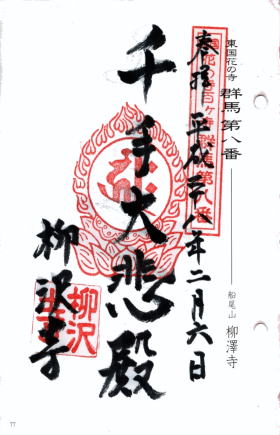 東国花の寺
群馬 第八番
船尾山 柳澤寺
奉拝 平成二十八年二月六日
千手大悲殿
柳沢寺
77